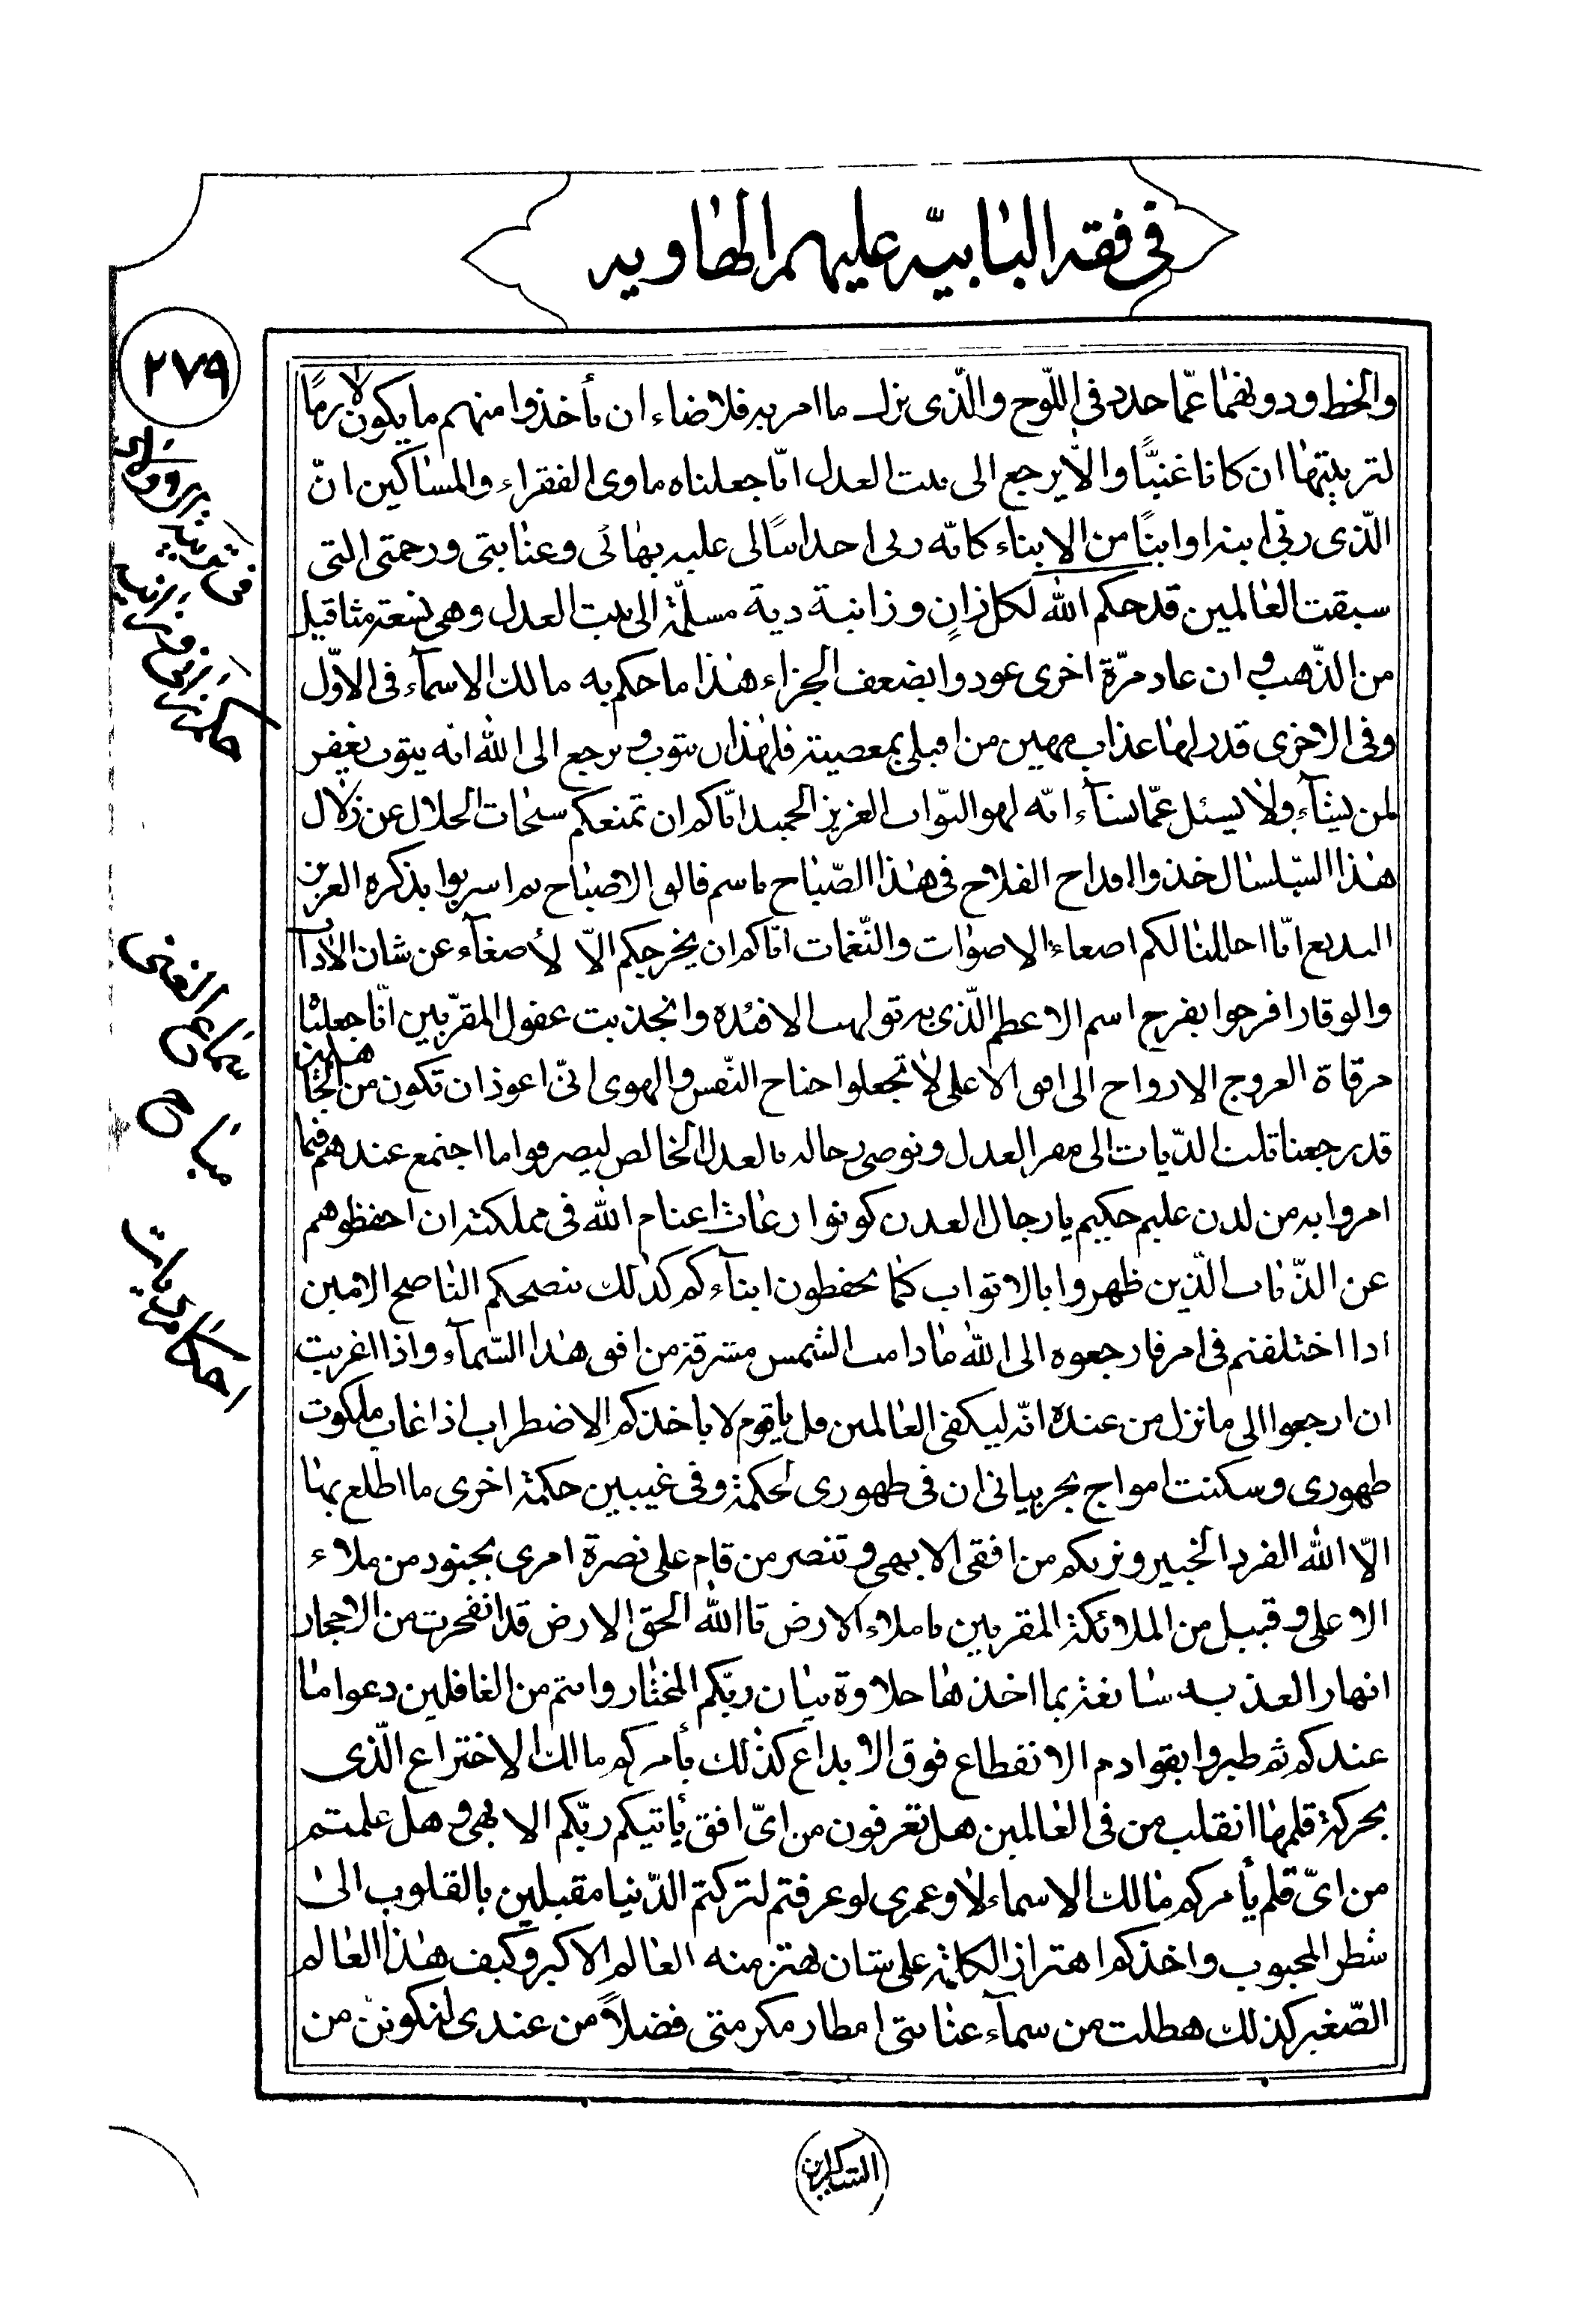 فی فقه البابیّه علیهم الهاویه
۲۷۹
والخط ودونهما عمّا حدد فی اللّوح والّذی نزل ما امر به فلا ضاء ان یأخذوا منهم ما یکون لازمًا
لتربیتهما ان کانا غنیًّا والّا یرجع الی بیت العدل انّا جعلناه ماوی الفقراء والمساکین انّ
الّذی ربّی ابنه او ابنًا من الابناء کانّه ربی احد ابنائی علیه بهائی وعنایتی ورحمتی التی
سبقت العالمین قد حکم الله لکل زانٍ وزانیة دیة مسلّمة الی بیت العدل وهی تسعة مثاقیل
من الذّهب و ان عاد مرّة اخری عودوا بضعف الجزاء هذا ما حکم به مالک الاسمآء فی الاوّل
وفی الاخری قدر لهما عذاب مهین من ابتلی بمعصیته فله ان یتوب و یرجع الی الله انه یتوب یغفر
لمن یشآء ولا یسئل عمّا شآء انّه لهو التوّاب العزیز الحمید ایّاکم ان تمنعکم سبحات الجلال عن زلال
هذا السّلسال خذوا اقداح الفلاح فی هذا الصّباح باسم فالق الاصباح ثم اشربوا بذکره العزیز
البدیع انّا احللنا لکم اصغاء الاصوات والنّغمات ایّاکم ان یخرجکم الا لأصغآء عن شان الادآب
والوقار افرحوا بفرح اسم الاعظم الّذی به تولهت الافئده وانجذبت عقول المقرّبین انّا جعلناه
مرقاة العروج الارواح الی افق الاعلی لا تجعلوا جناح النّفس والهوی انیّ اعوذ ان تکون من الجاهلین
قد رجعنا ثلث الدّیات الی مقر العدل ونوصی رجاله بالعدل الخالص لیصرفوا ما اجتمع عندهم فیما
امروا به من لدن علیم حکیم یا رجال العدل کونوا رعات اغنام الله فی مملکته ان احفظوهم
عن الذّئاب الّذین ظهروا بالاثواب کما تحفظون ابنآءکم کذلک ینصحکم الناصح الامین
اذا اختلفتم فی امر فارجعوه الی الله ما دامت الشمس مشرقة من افق هذا السّمآء واذا اغربت
ان ارجعوا الی ما نزل من عنده انّه لیکفی العالمین قل یا قوم لا یاخذکم الاضطراب اذا غاب ملکوت
ظهوری وسکنت امواج بحر بیانی ان فی ظهوری لحکمة وفی غیبین حکمة اخری ما اطلع بها
الّا الله الفرد الخبیر ونریکم من افقی الابهی و تنصر من قام علی نصرة امری بجنود من ملاء
الاعلی و قبیل من الملائکة المقربین یا ملاء الارض تا الله الحق الارض قد انفجرت من الاحجار
انهار العذبه سائغة بما اخذها حلاوة بیان ربّکم المختار وانتم من الغافلین دعوا ما
عندکم ثم طیروا بقوادم الانقطاع فوق الابداع کذلک یأمرکم مالک الاختراع الّذی
بحرکة قلمها انقلب من فی العالمین هل تعرفون من ایّ افق یأتیکم ربّکم الابهی و هل علمتم
من ایّ قلم یأمرکم مالک الاسماء لا وعمری لو عرفتم لترکتم الدّنیا مقبلین بالقلوب الی
شطر المحبوب واخذکم اهتزاز الکلمة علی شان یهتز منه العالم الاکبر وکیف هذا العالم
الصّغیر کذلک هطلت من سمآء عنایتی امطار مکرمتی فضلاً من عندی لتکونن من
الشاکرین
حکم زانی و زانیه
سماع الغنی
مباح
احکام دیات